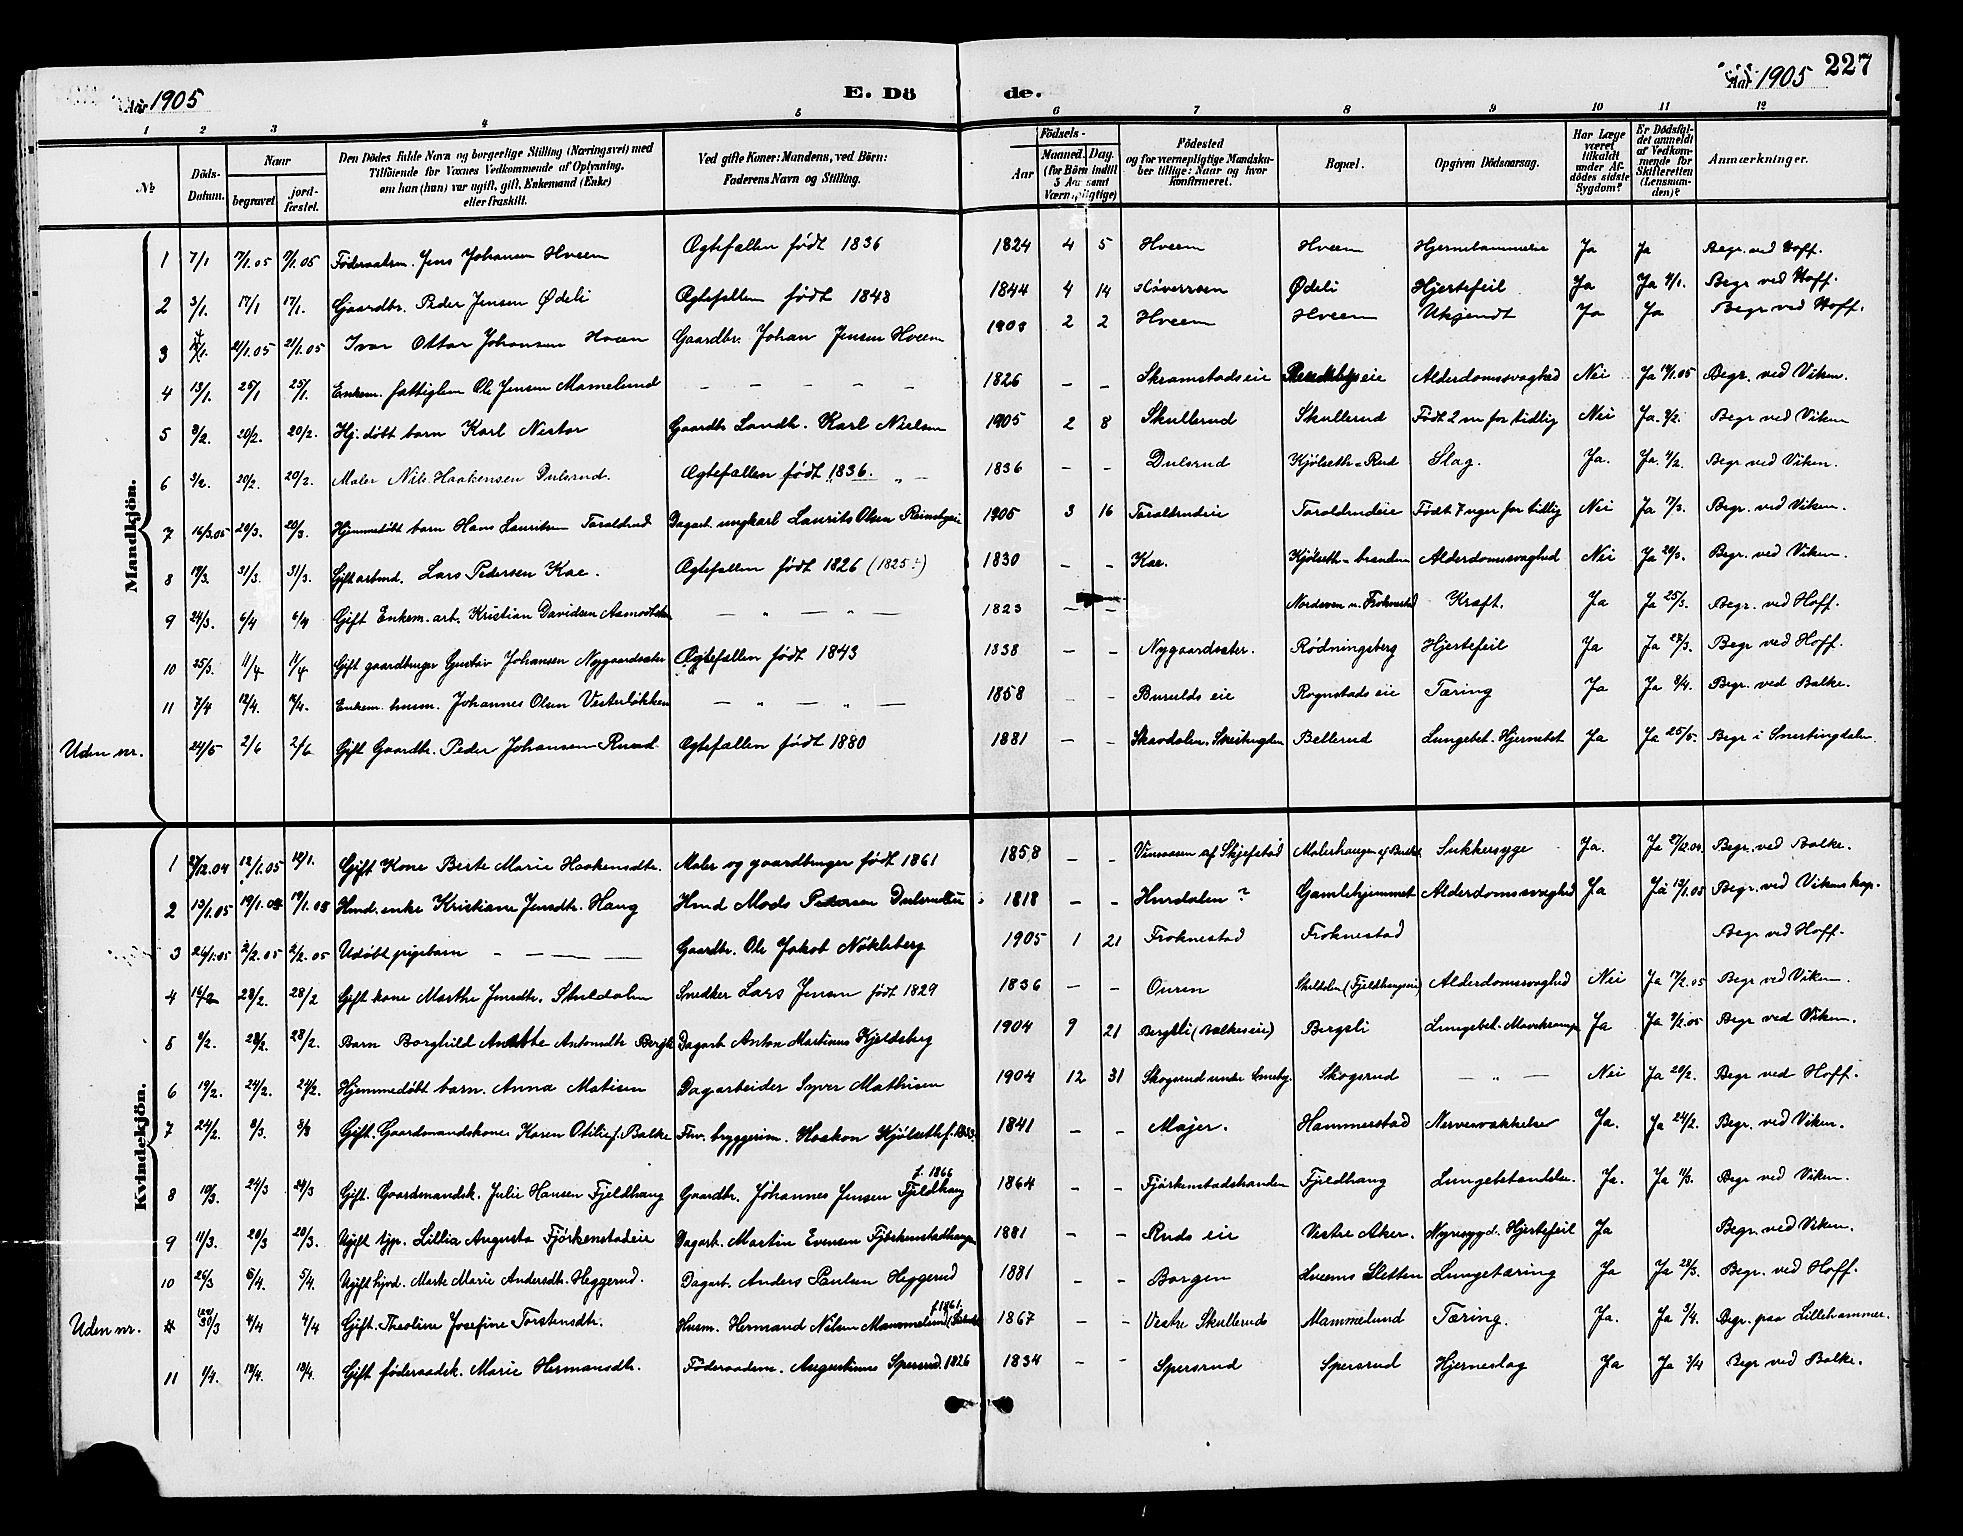 Aar 1905
E. Döde.
Aar 1905
227
1 2 3 4 5 6 7 8 9 10 11 12
№
Döds-Datum.
Naar
begravet
jordfæstet.
Den Dödes fulde Navn og borgerlige Stilling (Næringsvei) med
Tilföiende for Voxnes Vedkommende af Oplysning,
om han (hun) var ugift, gift, Enkemand (Enke)
eller fraskilt.
Ved gifte Koner: Mandens, ved Börn:
Faderens Navn og Stilling.
Födsels-
Aar
Maaned. Dag.
(for Börn indtil
5 Aar samt
Værnepligtige)
Födested
og for værnepligtige Mandskaber tillige: Naar og hvor
konfirmeret.
Bopæl.
Opgiven Dödsaarsag.
Har Læge været tilkaldt under Afdödes sidste Sygdom?
Er Dödsfaldet anmeldt af Vedkommende for Skifteretten (Lensmanden)?
Anmærkninger.
Mandkjön.
1 7/1 7/1.05 7/1.05 Føderaadsm. Jens Johansen Hveem Ægtefællen født 1836 1824 4 5 Hveem Hveem Hjernelammelse Ja Ja Begr. ved Hoff.
2 3/1. 17/1 17/1. Gaardbr. Peder Jensen Ødeli Ægtefællen født 1848 1844 4 14 Høversøen Ødeli Hjertefeil Ja Ja 4/1. Begr ved Hoff.
3 21/1.05 21/1.05 Ivar Ottar Johansen Hveem Gaardbr. Johan Jensen Hveem 1903 2 2 Hveem Hveem Ukjendt Ja Ja Begr ved Hoff.
4 13/1. 25/1 25/1. Enkem. fattiglem Ole Jensen Mamelund – – – – – 1826 – – Skramstadseie Alderdomssvaghed Nei Ja 14/1.05 Begr. ved Viken.
5 8/2. 20/2. 20/2. Hj. døbt barn Karl Nestor Gaardbr Landh. Karl Nielsen 1905 2 8 Skullerud Skullerud Født 2 m for tidlig Nei Ja. 9/2. Begr ved Viken
6 3/2. 20/2. 20/2. Maler Nils Haakensen Dulsrud. Ægtefællen født 1836. 1836 – – Dulsrud Kjølseth-Rud Slag. Ja. Ja. 4/2. Begr ved Viken.
7 16/3.05 29/3. 29/3. Hjemmedøbt barn Hans Lauritsen Taralsrud Dagarb. ungkarl Laurits Olsen Reinsbyeie 1905 3 16 Taralsrudeie Taralsrudeie Født 7 uger for tidlig Nei Ja 17/3. Begr. ved Viken.
8 19/3. 31/3. 31/3. Gift arbmd. Lars Pedersen Kae. Ægtefællen født 1826 (1825:-) 1830 – – Kae. Kjølseth-branden Alderdomssvaghed Nei Ja 20/3. Begr. ved Viken.
9 24/3. 6/4 6/4 Gift Enkem. arb. Kristian Davidsen – " – " – 1823 – – Nordeven u. Froknestad Kræft. Ja Ja 25/3. Begr. ved Hoff.
10 25/3. 11/4 11/4 Gift gaardbruger Gustav Johansen Nygaardsæter Ægtefællen født 1843 1838 – – Nygaardsæter. Rødningsberg Hjertefeil Ja Ja 27/3. Begr ved Hoff.
11 7/4 12/4. 12/4. Enkem. husm. Johannes Olsen Vesterløkken – " – " – 1858 – – Burulds eie Rognstads eie Tæring Ja Ja 8/4. Begr. ved Balke.
Uden nr. 24/5 2/6 2/6 Gift Gaardbr. Peder Johansen Ruud. Ægtefællen født 1880 1881 – – Skavdalen. Snertingdalen Bellerud Lungebet. Hjernebet Ja Ja 25/5. Begr i Snertingdalen
Kvindekjön.
1 27/12.04 12/1.05 12/1. Gift Kone Berte Marie Haakensdtr. Maler og gaardbruger født 1861 1858 – – Vinnaasen af Skjefstad Malerhaugen af Sukkersyge Ja. Ja 27/12.04. Begr. ved Balke.
2 13/1.05 19/1.05 19/1.05 Hmd. enke Kristiane Jensdtr. Haug Hmd Mads Pedersen Dulsrudeie 1818 – – Hurdalen ? Gamlehjemmet Alderdomssvaghed Ja Ja 13/1.05 Begr. ved Vikens kap.
3 24/1.05 2/2.05 2/2.05 Udøbt pigebarn – – – – Gaardbr. Ole Jakob Nøklsberg 1905 1 21 Froknestad Froknestad Begr ved Hoff.
4 16/2 28/2. 28/2 Gift kone Marthe Jensdtr. Skildalen Snedker Lars Jensen født 1829 1836 – – Ouren Skildalen (Fjeldhaugseie) Alderdomssvaghed Nei Ja 17/2.05 Begr ved Viken
5 8/2. 28/2. 28/2. Barn Borghild Anette Antonsdtr Bergsli Dagarb Anton Martinus Kjeldsberg 1904 9 21 Bergsli (Balkeseie) Bergsli Lungebet. Mavekrampe Ja Ja 9/2.05 Begr ved Viken.
6 19/2. 24/2. 24/2. Hjemmedøbt barn. Anna Matisen Dagarbeider Syver Mathisen 1904 12 31 Skogsrud under Smeby. Skogsrud – " – Nei Ja 20/2. Begr ved Hoff.
7 24/2. 3/3. 3/3 Gift. Gaardmandskone. Karen Otilie f. Balke Fhv. byggerim. Haakon Kjølseth f. 1853. 1841 – – Majer. Hammerstad Nervesvækkelse Ja. Ja 24/2. Begr. ved Viken.
8 10/3. 24/3 24/3 Gift. Gaardmandsk. Julie Hansen Fjeldhaug Gaardbr. Johannes Jensen Fjeldhaug f. 1866 1864 – – Fjørkenstadshanden Fjeldhaug Lungebetændelse. Ja. Ja 11/3. Begr ved Viken.
9 11/3. 20/3 20/3. Ugift tjp. Lillia Augusta Fjørkenstadeie Dagarb. Martin Evensen Fjørkenstadhaugen 1881 – – Ruds eie Vestre Aker. Nyresygd. Hjertefeil Ja Begr. ved Viken.
10 26/3 5/4. 5/4. Ugift hjvd. Marte Marie Andersdtr. Heggerud. Dagarb. Anders Paulsen Heggerud 1881 – – Borgen Hveems Sletten Lungetæring Ja Ja 28/3. Begr. ved Hoff.
Uden nr. 30/3 4/4 4/4 Gift. Theoline Josefine Torstensdtr. Husm. Hermand Nilsen Mammelund f. 1861. 1867 – – Vestre Skullerud Mammelund Tæring. Ja. Ja 3/4. Begr. paa Lillehammer.
11 1/4. 13/4. 13/4. Gift føderaadsk. Marie Hermansdtr. Føderaadsm. Augustinus Spersrud. 1826 1834 – – Spersrud Spersrud Hjerneslag Ja Ja 3/4 Begr ved Balke.